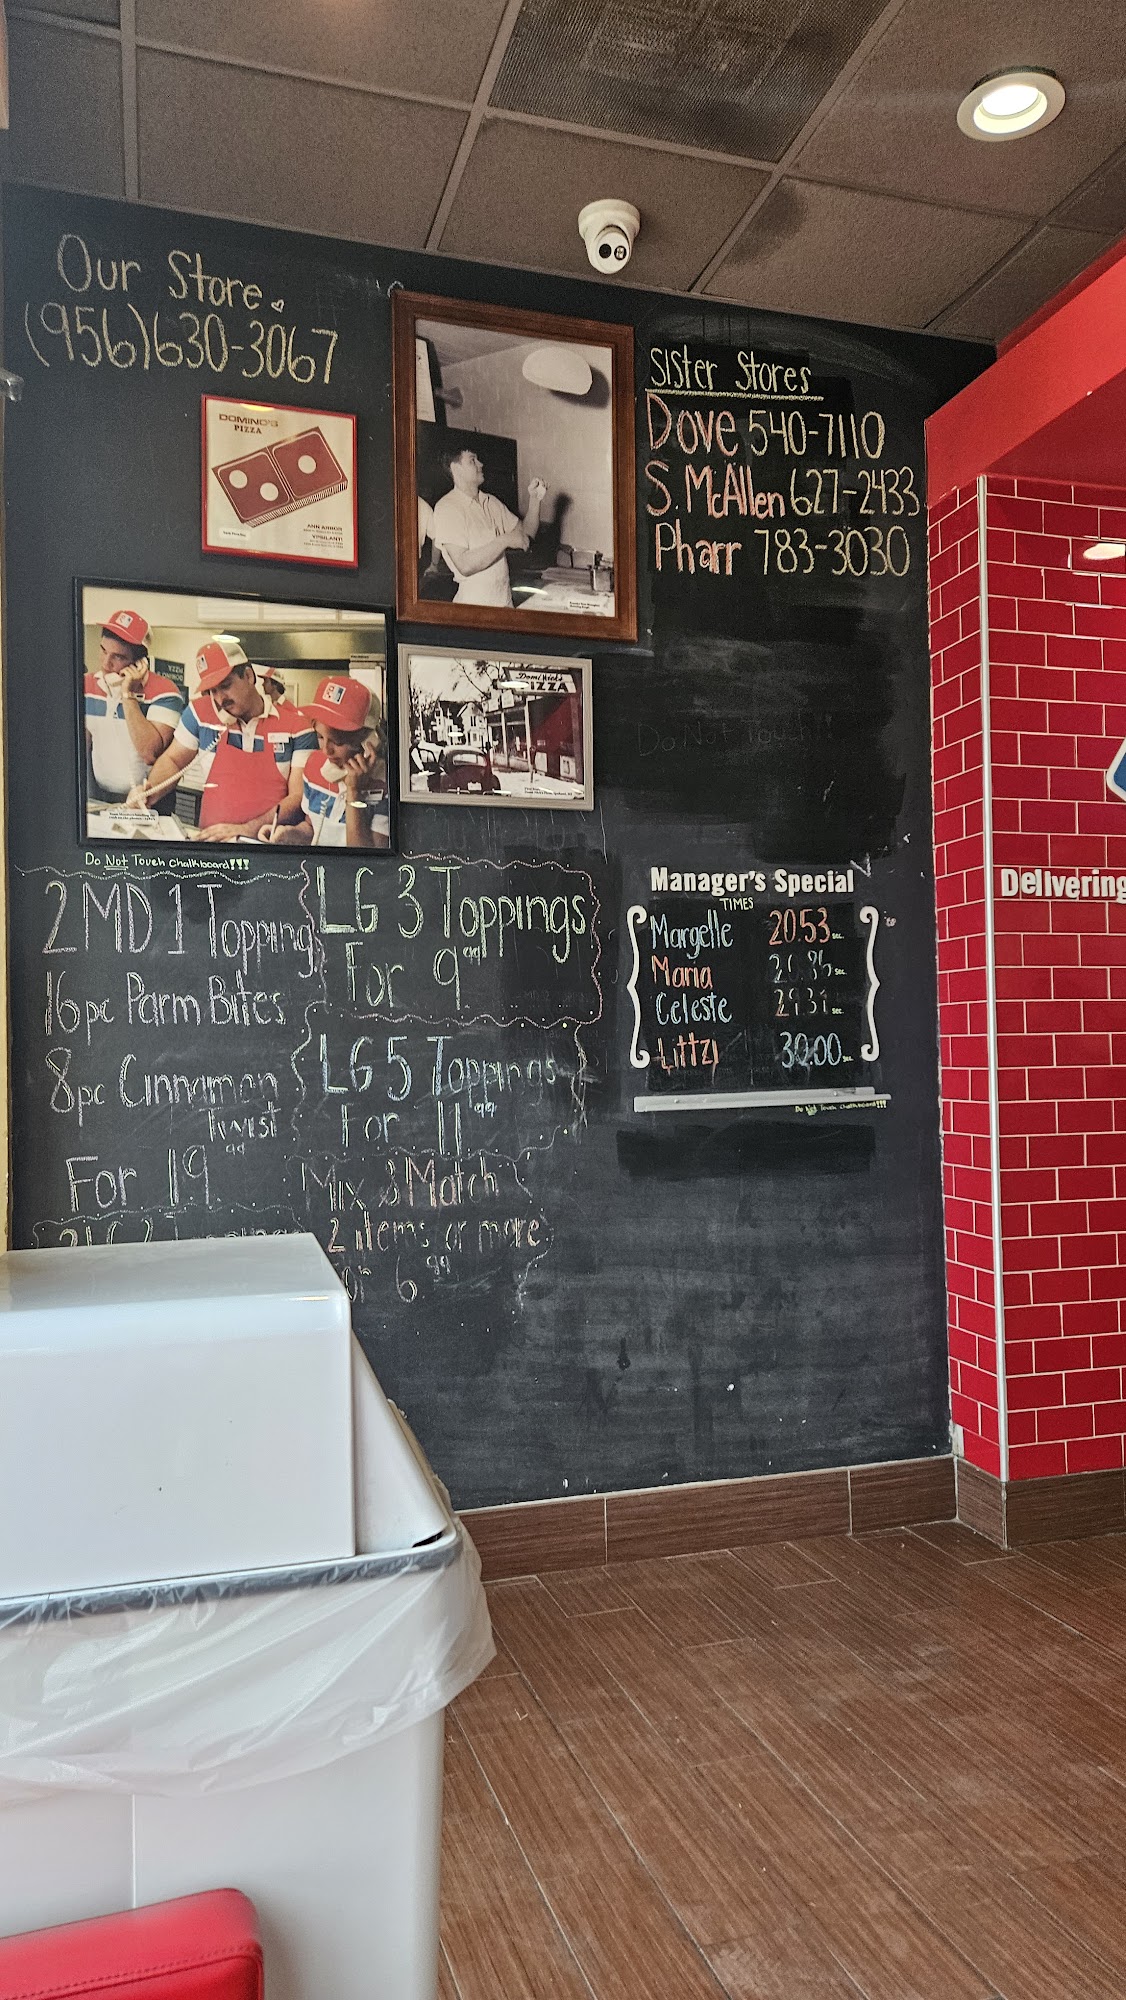 Our Store
(956)630-3067
DOMINO'S
PIZZA
ANN ARBOR
YPSILANTI
Sister Stores
Dove 540-7110
S. McAllen 627-2433
Pharr 783-3030
DomiNick's
PIZZA
Do Not Touch!!
Do Not Touch Chalkboard!!!
2 MD 1 Topping
16pc Parm Bites
8pc Cinnamon
Twist
For 19 99
LG 3 Toppings
For 9 99
LG 5 Toppings
For 11 99
Mix & Match
2 items or more
6 99
Manager's Special
TIMES
Margelle 20.53 sec.
Maria
Celeste
Littzi 30.00 sec.
Do Not Touch Chalkboard!!!
Delivering